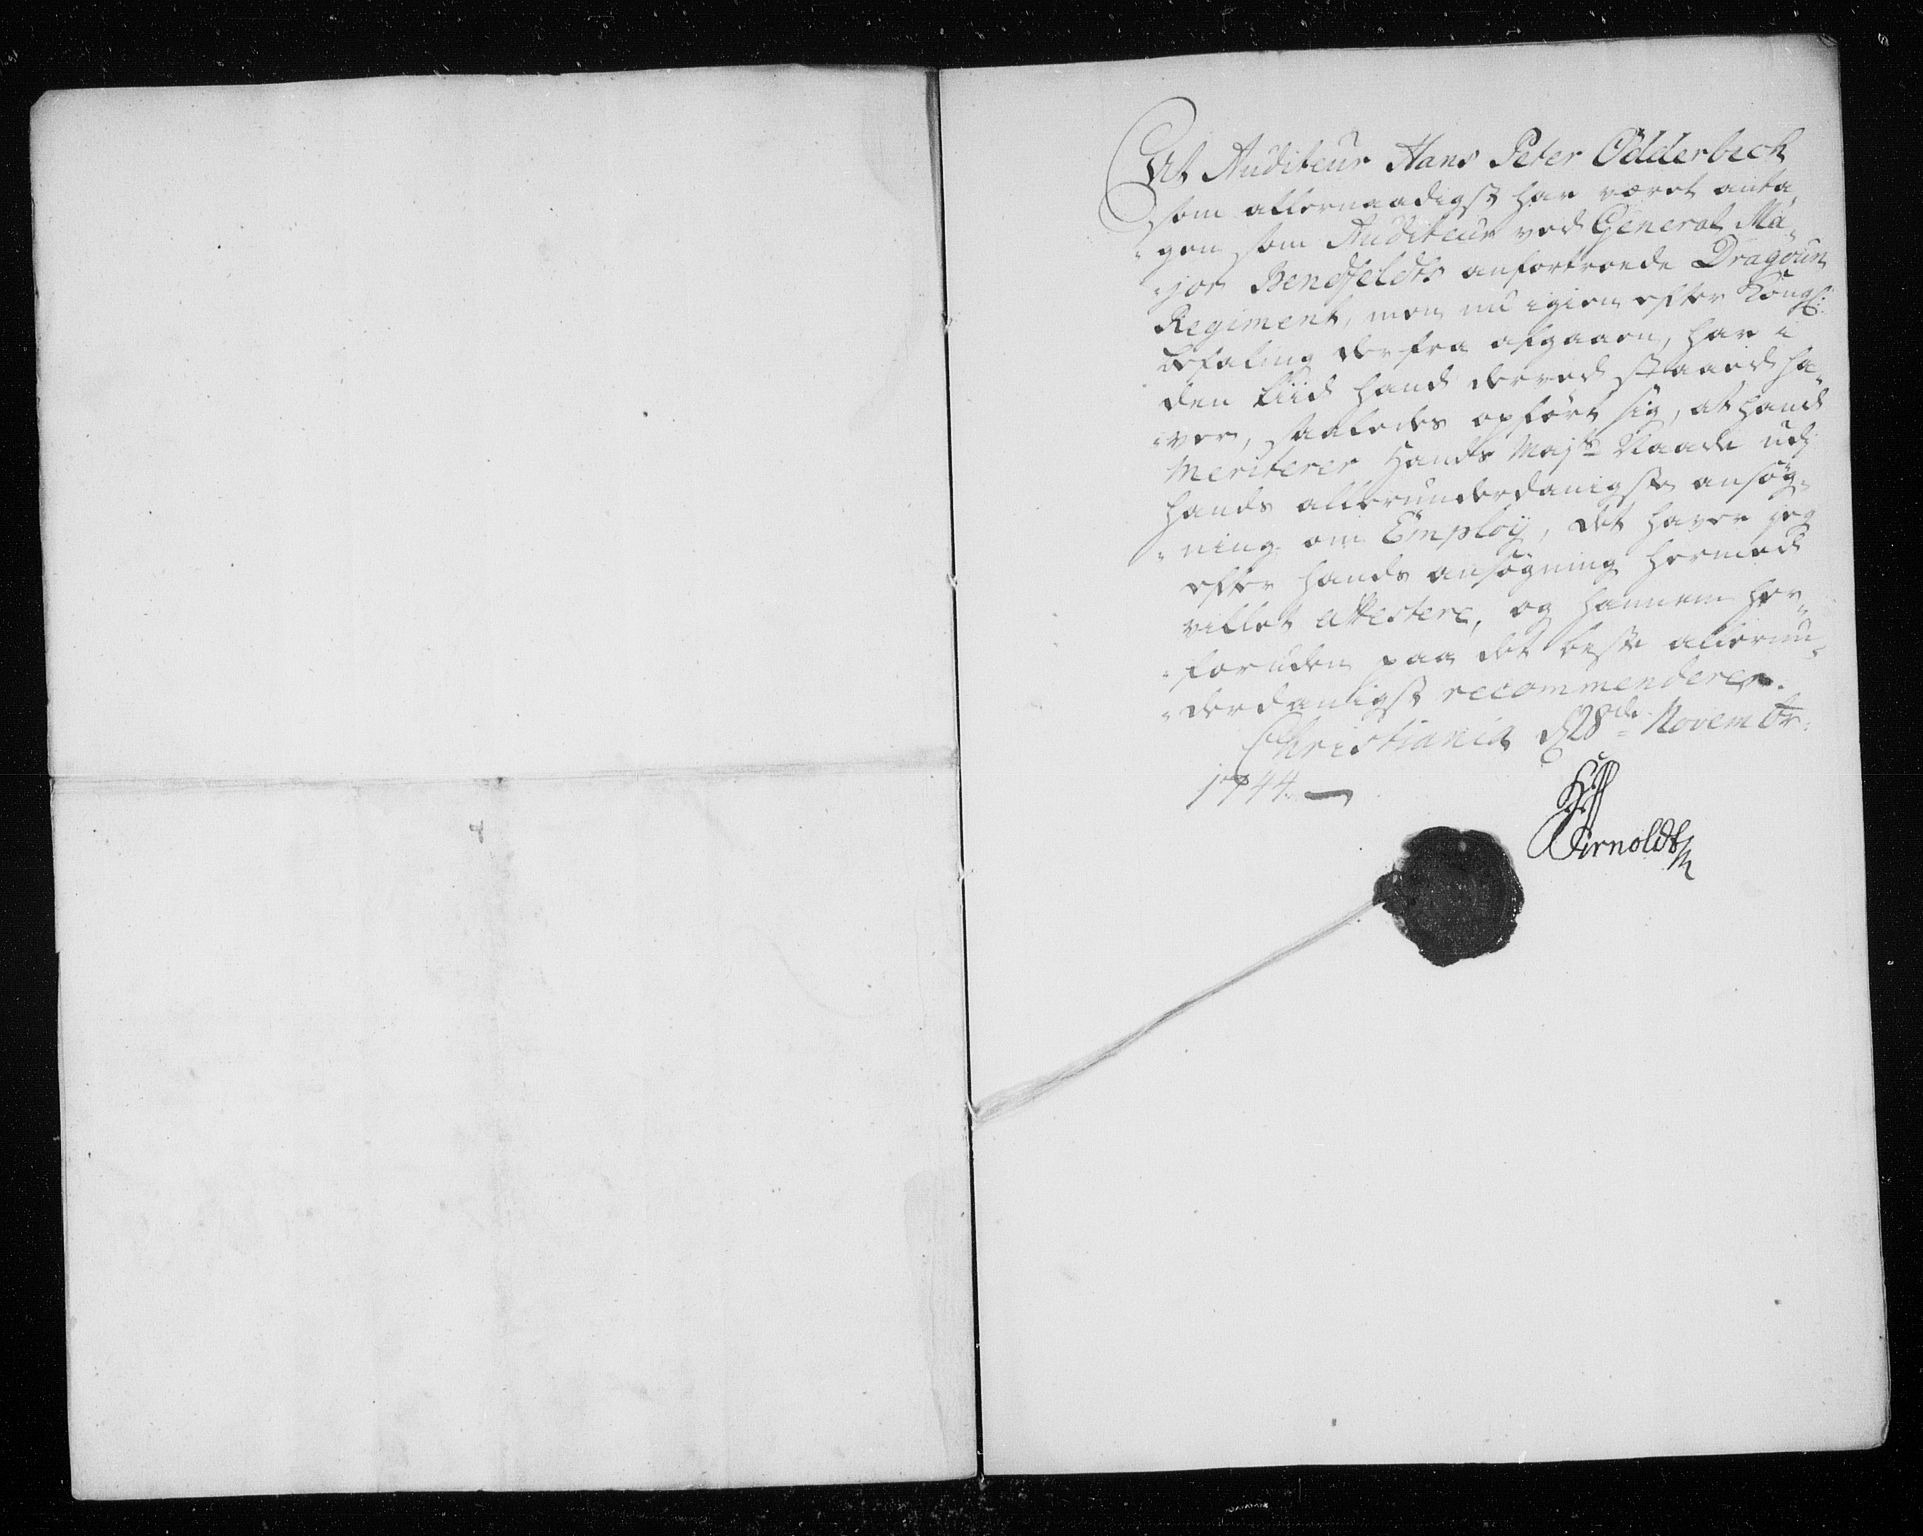 At Auditeur Hans Peter Odderbech
som allernaadigst har været anta-
-gen som Auditeur ved General Ma-
-jor Benedfeldts anfortroede Dragoun
Regiment, men nu igien efter Kongl:
befaling derfra afgaaen, har i
den tiid hand derved staaed ha-
-ver, saaledes opført sig, at hand
meriterer Hands Majts Naade udj
hands allerunderdanigste ansøg-
-ning om Employ, det haver jeg
efter hands ansøgning hermed
villet attestere, og hannem her-
-foruden paa det beste allerun-
-derdanigst recommendere.
Christiania d 28de Novembr:
1744.
Arnoldt